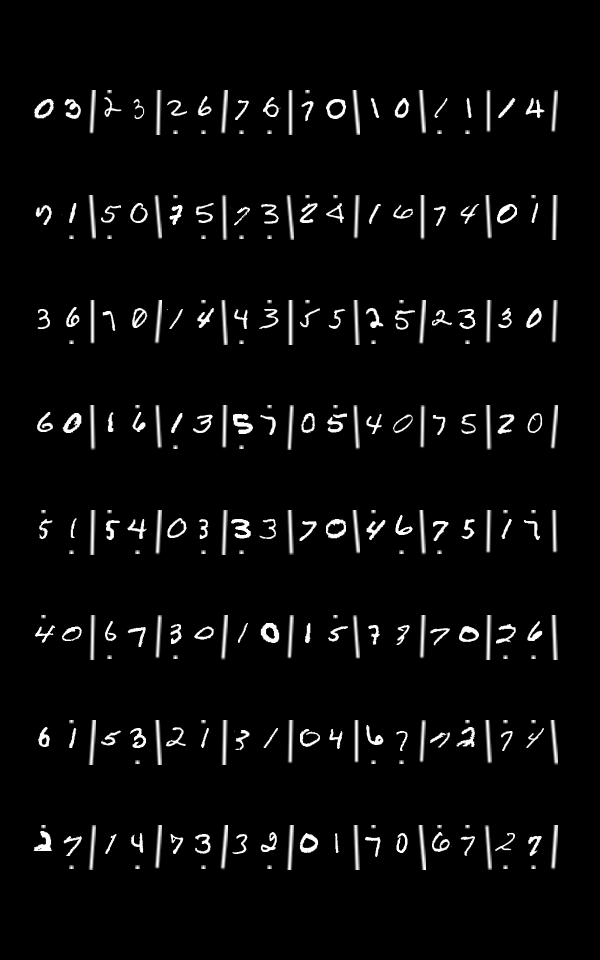 0 3 | 2 3 | 2 6 | 7 6 | 7 0 | 1 0 | 1 1 | 1 4 |
7 1 | 5 0 | 7 5 | 7 3 | 2 4 | 1 6 | 7 4 | 0 1 |
3 6 | 7 0 | 1 4 | 4 3 | 5 5 | 2 5 | 2 3 | 3 0 |
6 0 | 1 6 | 1 3 | 5 7 | 0 5 | 4 0 | 7 5 | 2 0 |
5 1 | 5 4 | 0 3 | 3 3 | 7 0 | 4 6 | 7 5 | 1 7 |
4 0 | 6 7 | 3 0 | 1 0 | 1 5 | 7 3 | 7 0 | 2 6 |
6 1 | 5 3 | 2 1 | 3 1 | 0 4 | 6 7 | 7 2 | 7 4 |
2 7 | 1 4 | 7 3 | 3 2 | 0 1 | 7 0 | 6 7 | 2 7 |